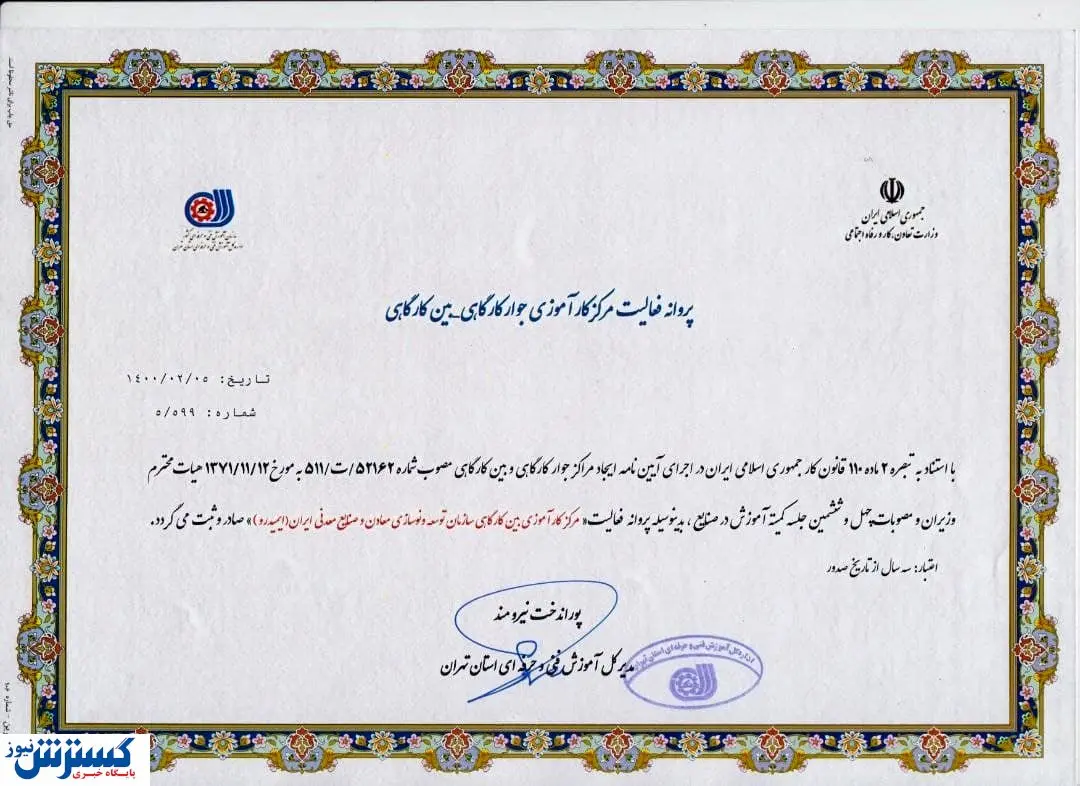 جمهوری اسلامی ایران
وزارت تعاون، کار و رفاه اجتماعی
سازمان آموزش فنی و حرفه ای کشور
اداره کل آموزش فنی و حرفه ای استان تهران
پروانه فعالیت مرکز کارآموزی جوار کارگاهی_بین کارگاهی
تاریخ: ۱٤۰۰/۰۲/۰۵
شماره: ۵/۵۹۹
با استناد به تبصره ۲ ماده ۱۱۰ قانون کار جمهوری اسلامی ایران در اجرای آیین نامه ایجاد مراکز جوار کارگاهی و بین کارگاهی مصوب شماره ۵۲۱۶۲/ت/۵۱۱ به مورخ ۱۳۷۱/۱۱/۱۲ هیات محترم
وزیران و مصوبات چهل و ششمین جلسه کمیته آموزش در صنایع ، بدینوسیله پروانه فعالیت« مرکز کارآموزی بین کارگاهی سازمان توسعه و نوسازی معادن و صنایع معدنی ایران(ایمیدرو)» صادر و ثبت می گردد.
اعتبار: سه سال از تاریخ صدور
پوراندخت نیرومند
مدیر کل آموزش فنی و حرفه ای استان تهران
اداره کل آموزش فنی و حرفه ای استان تهران
گسترش نیوز
پایگاه خبری